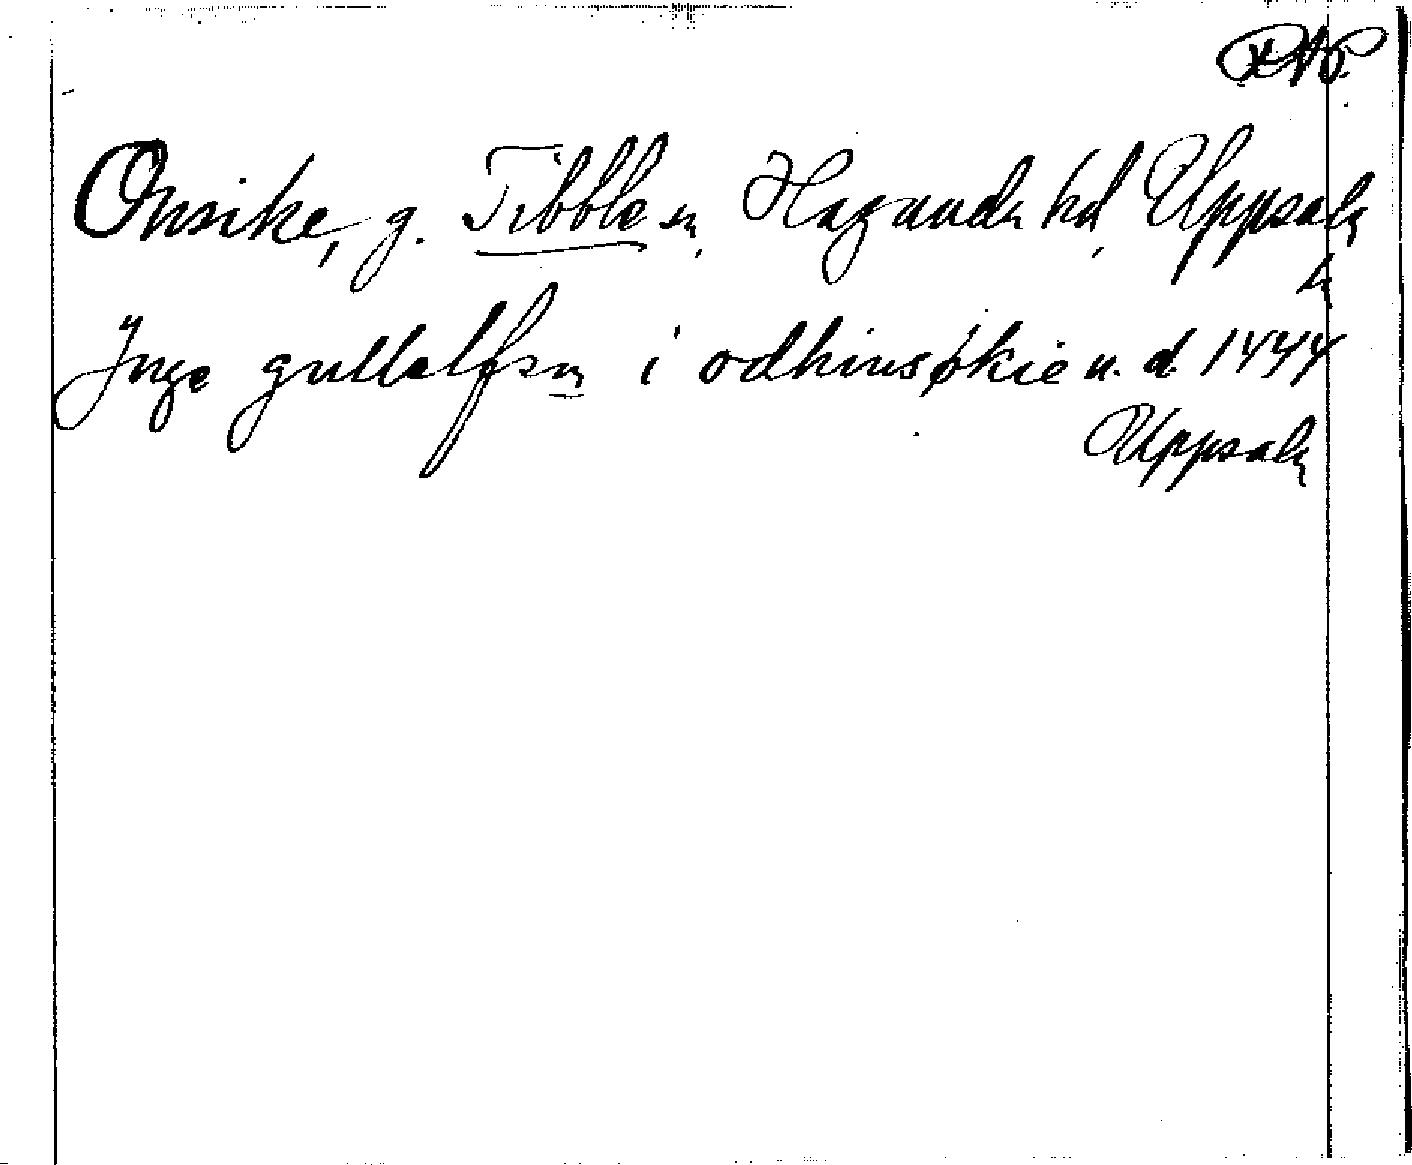 RAp.
Onsike, g. Tibble sn, Hagunda hd, Uppsala
ln
Inge gullalfsson i odhinsøkie u. d. 1444
Uppsala